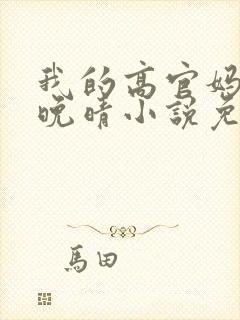 我的高官妈
晚晴小说免
馬田